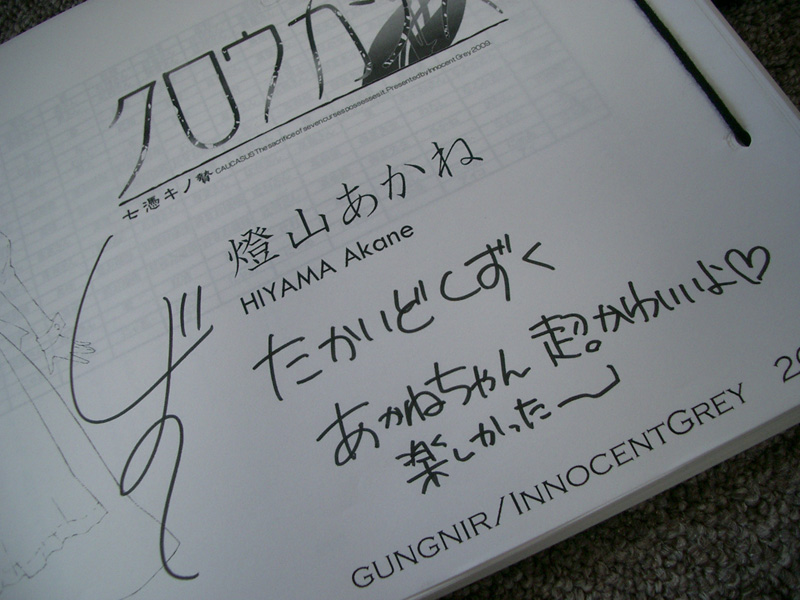 クロウカシス
七憑キノ贄 CAUCASUS The sacrifice of seven curses possesses it. Presented by Innocent Grey 2009.
燈山あかね
HIYAMA Akane
たかいどしずく
あかねちゃん 超。かわいいよ♡
楽しかったー
GUNGNIR/INNOCENTGREY 20